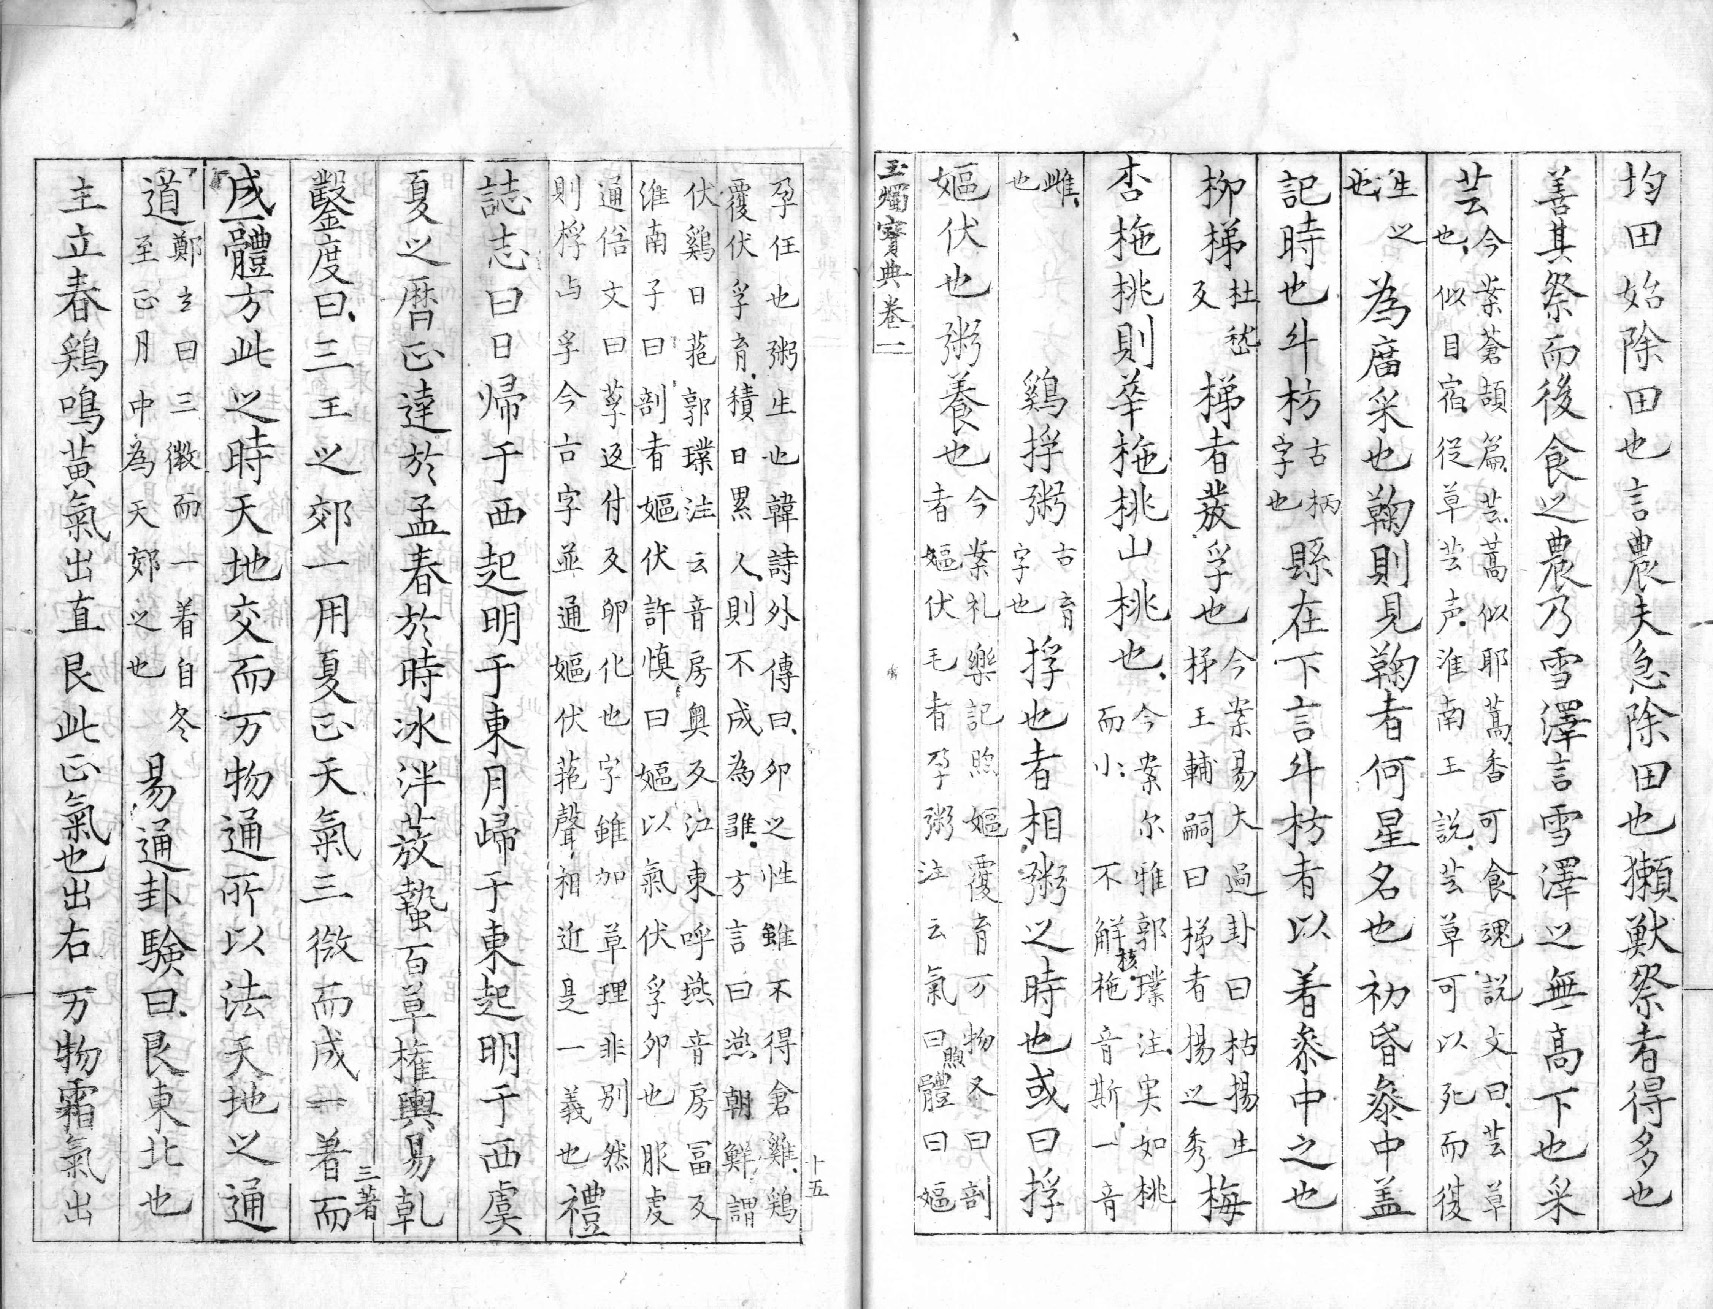 均田始除田也言農夫急除田也獺獸祭者得多也
善其祭而後食之農乃雪澤言雪澤之無高下也采
芸今案蒼頡篇芸蒿似耶蒿香可食魂説文曰芸草也似目宿從草芸声淮南王説芸草可以死而復
生之也為廟采也鞠則見鞠者何星名也初昏叅中盖
記時也斗枋古柄字也縣在下言斗枋者以着叅中之也
柳梯杜嵇反梯者發孚也今案易大過卦曰枯揚生梯王輔嗣曰梯者揚之秀梅
杏杝桃則華杝桃山桃也今案尔雅郭璞注实如桃而小不解核杝音斯一音
雌也鷄捊粥古育字也捊也者相粥之時也或曰捊
嫗伏也粥養也今案礼樂記煦嫗覆育万物又曰剖者嫗伏毛者孕粥注云氣曰煦體曰嫗
玉燭寳典卷一
十五
孕任也粥生也韓詩外傳曰卵之性雖不得倉雞鷄覆伏孚育積日累人則不成為雛方言曰燕朝鮮謂
伏鷄曰菢郭璞注云音房奥反江東呼燕音房冨反淮南子曰剖者嫗伏許慎曰嫗以氣伏孚卵也服虔
通俗文曰孚返付反卵化也字雖加草理非别然則桴与孚今古字並通嫗伏菢聲相近是一義也禮
誌志曰日歸于西起明于東月歸于東起明于西虞
夏之暦正達於孟春於時冰泮蕟蟄百草權輿易乹
鑿度曰三王之郊一用夏正天氣三微而成一著三著而
成體方此之時天地交而万物通所以法天地之通
道鄭玄曰三微而一着自冬至正月中為天郊之也易通卦驗曰艮東北也
主立春鷄鳴黄氣出直艮此正氣也出右万物霜氣出